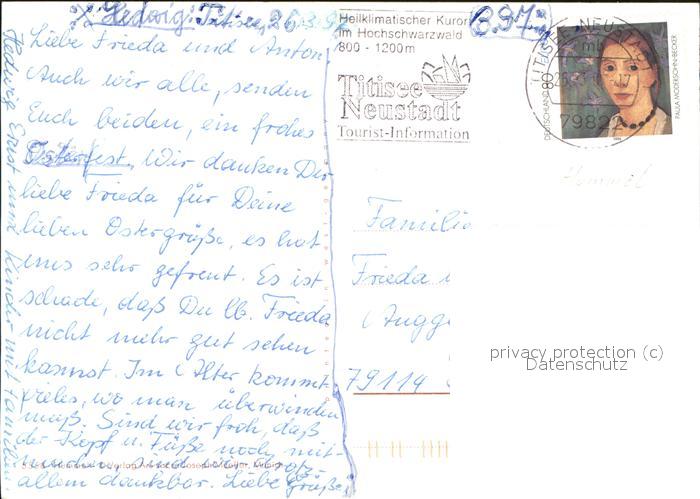 Hedwig: Titisee, 26.3.97
Liebe Frieda und Anton!
Auch wir alle, senden
Euch beiden, ein frohes
Osterfest. Wir danken Dir
liebe Frieda für Deine
lieben Ostergrüße, es hat
uns sehr gefreut. Es ist
schade, daß Du lb. Frieda
nicht mehr gut sehen
kannst. Im Alter kommt
vieles, wo man überwinden
muß. Sind wir froh, daß
der Kopf u. Füße noch mit-
allem dankbar. Liebe Grüße
Hedwig Ernst und Kinder mit Familien.
Heilklimatischer Kurort
im Hochschwarzwald
800 - 1200m
Titisee
Neustadt
Tourist-Information
8.97
TITISEE-NEUSTADT
79822
DEUTSCHLAND
PAULA MODERSOHN-BECKER
Familie
Frieda
79114
privacy protection (c)
Datenschutz